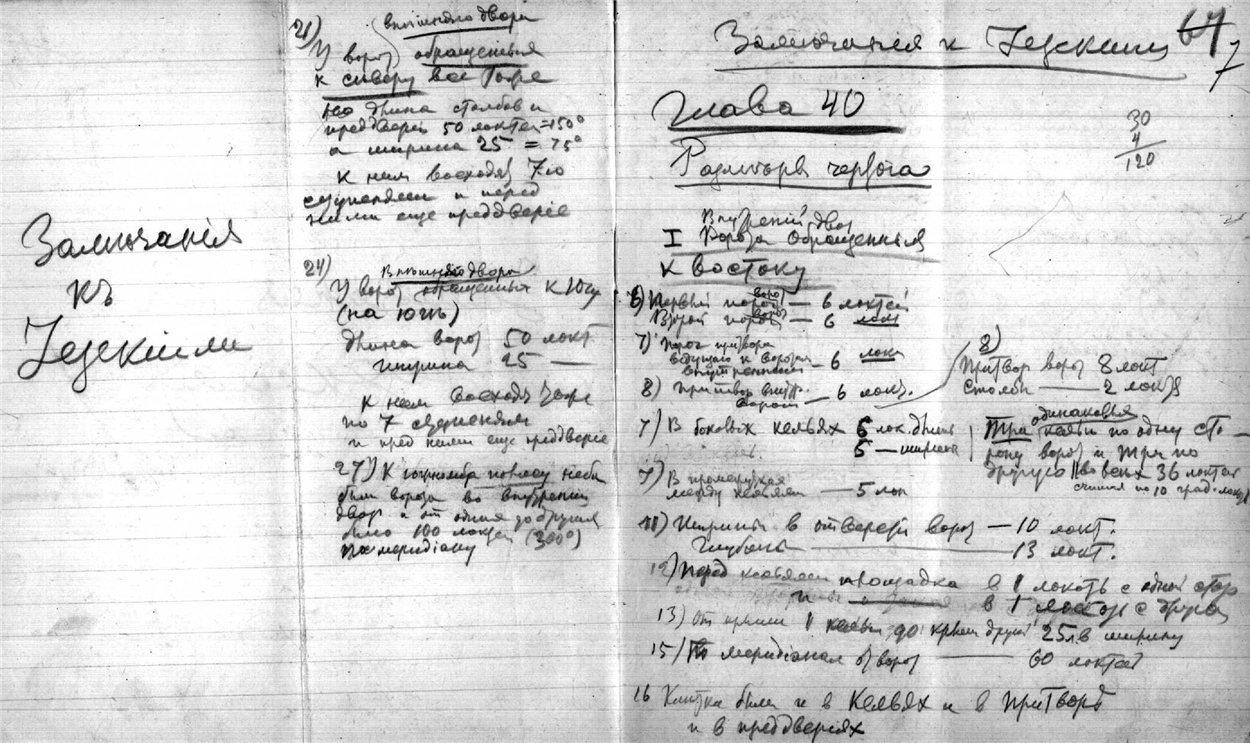 Замѣчанія
къ
Іезекіилю
21) внѣшняго двора
У ворот обращенныя
к сѣверу
длина столбов и
преддверій 50 локтей = 150°
а ширина 25 = 75°
к ним восходят 7ю
ступенями и перед
ними еще преддверіе
24) внѣшняго двора
У ворот обращенных к Югу
(на югъ)
Длина ворот 50 локт
ширина 25 —
к ним восходят
по 7 ступеням
и пред ними еще преддверіе
27) К
были ворота во внутренній
двор и от одних до других
было 100 локтей (300°)
по меридіану
Замѣчанія к Іезекіилю 67
7
Глава 40
30
4
120
Размѣры чертога
Внутренній двор
I Ворота Обращенныя
к востоку
6) Первый порог ворот — 6 локтей
Второй порог ворот — 6 локт
7) Порог притвора
ведущаго к воротам
внутренним — 6 локт
8) притвор внутр.
ворот — 6 локт.
8)
Притвор ворот 8 локт
Столбы — 2 локтя
7) В боковых кельях 6 лок. длина
5 — ширина
Три одинаковыя кельи по одну сто-
рону ворот и три по
другую || во всех 36 локтей
считая по 10 град.
7) В промежутках
между кельями — 5 лок
11) Ширины в отверстіи ворот — 10 локт.
Глубины — 13 локт.
12) Перед кельями площадка в 1 локоть с одной стор
в 1 локоть с другой
13) От крыши 1 кельи до крыши другой 25 л. в ширину
15) По меридіанам от ворот — 60 локтей
16 были и в Кельях и в Притворѣ
и в преддверіях